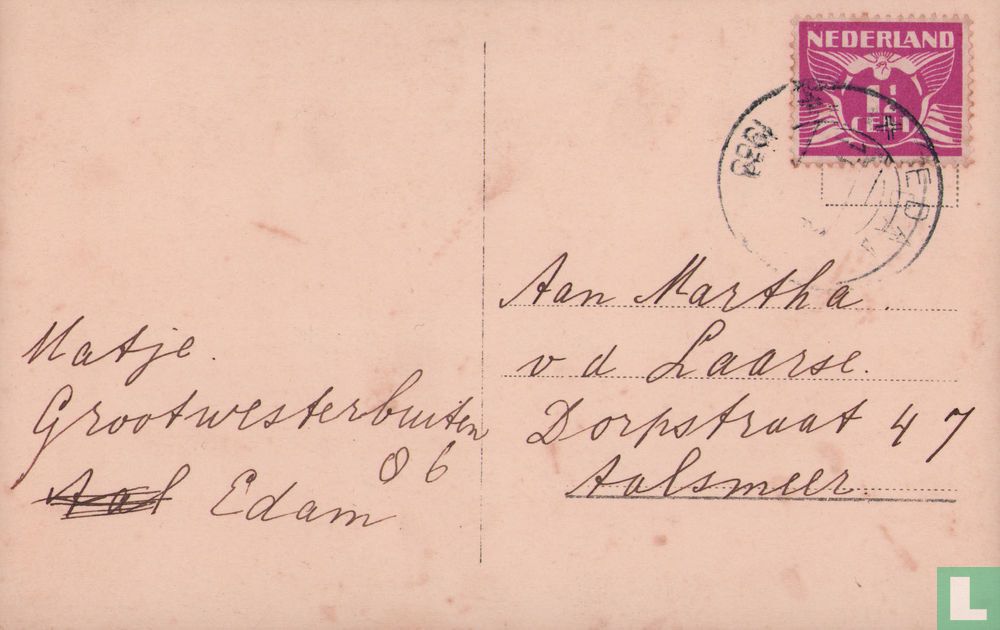 NEDERLAND
1½
CENT
EDAM
Aan Martha
v d Laarse.
Dorpstraat 47
Aalsmeer.
Matje.
Grootwesterbuiten
86
Aal Edam
L